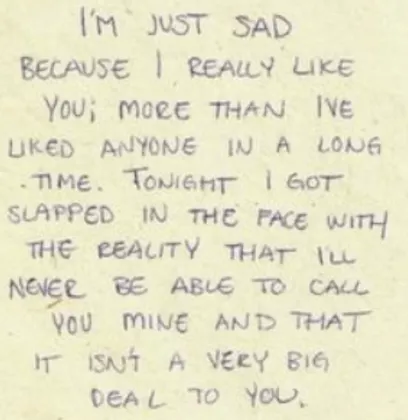 I'M JUST SAD
BECAUSE I REALLY LIKE
YOU; MORE THAN I'VE
LIKED ANYONE IN A LONG
TIME. TONIGHT I GOT
SLAPPED IN THE FACE WITH
THE REALITY THAT I'LL
NEVER BE ABLE TO CALL
YOU MINE AND THAT
IT ISN'T A VERY BIG
DEAL TO YOU.